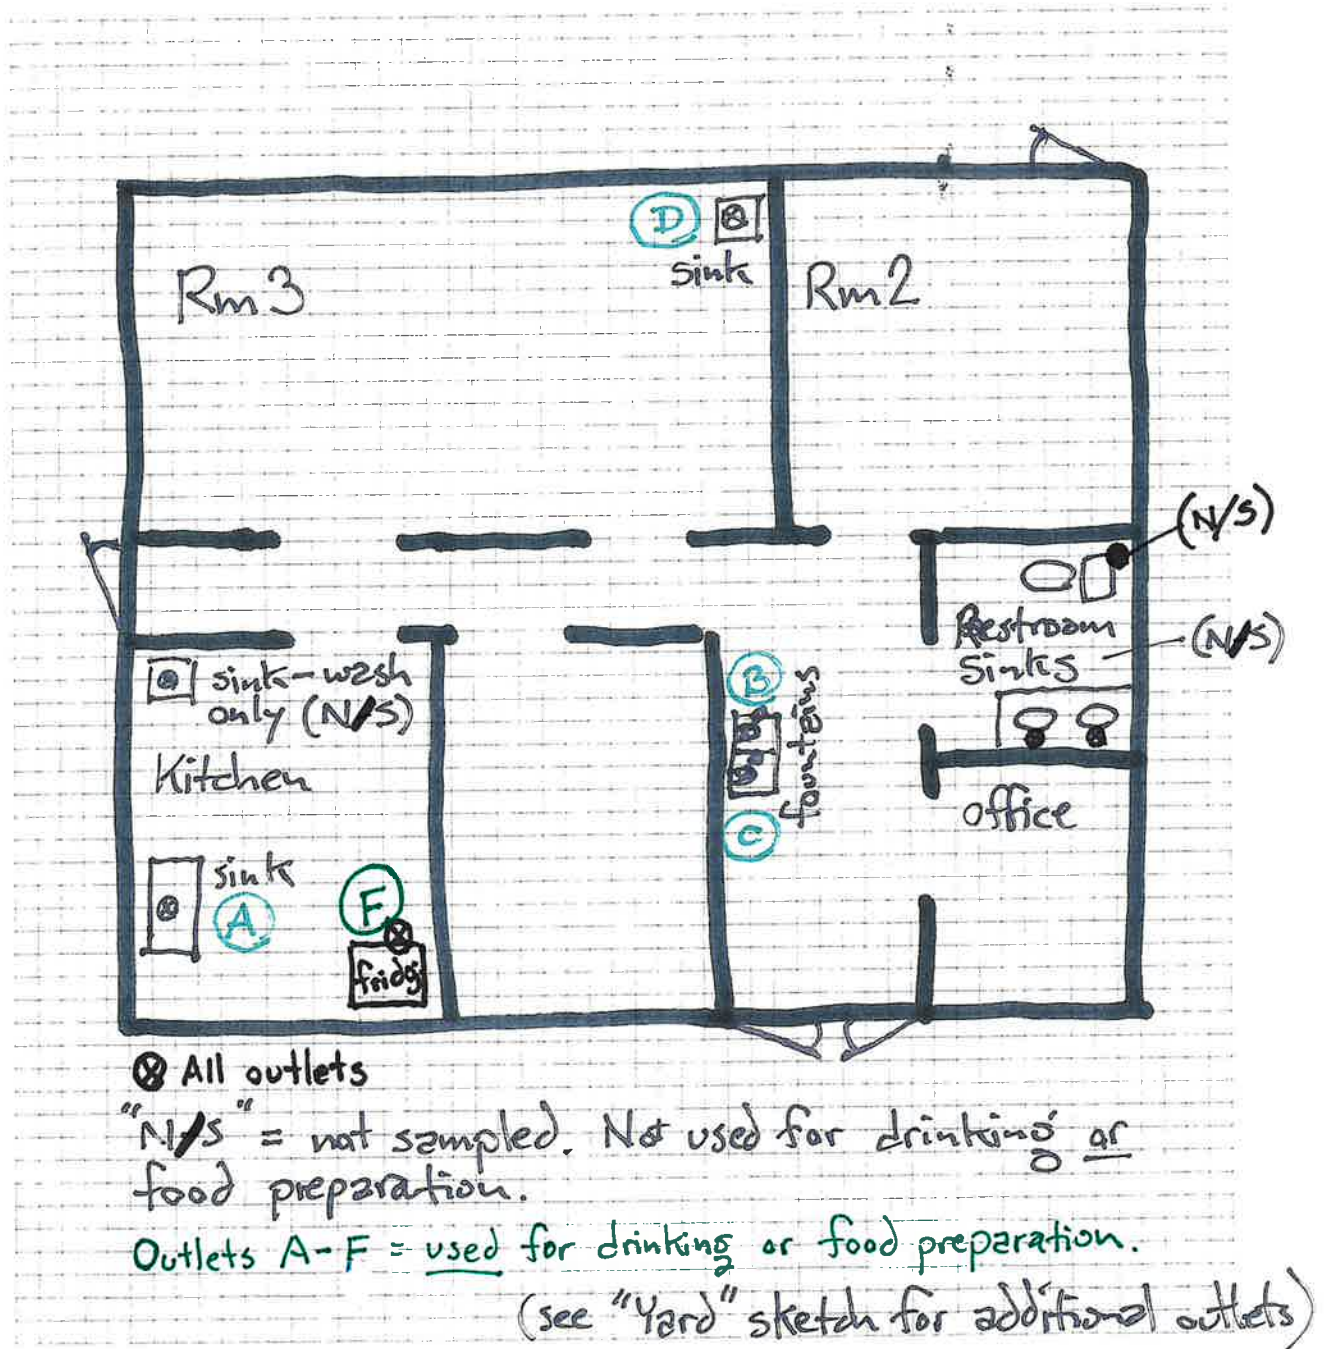 D
sink
Rm 3
Rm 2
(N/S)
Restroom
Sinks
(N/S)
sink-wash
only (N/S)
B
fountains
Kitchen
C
office
sink
A
F
fridg
⊗ All outlets
"N/S" = not sampled. Not used for drinking or
food preparation.
Outlets A-F = used for drinking or food preparation.
(see "Yard" sketch for additional outlets)